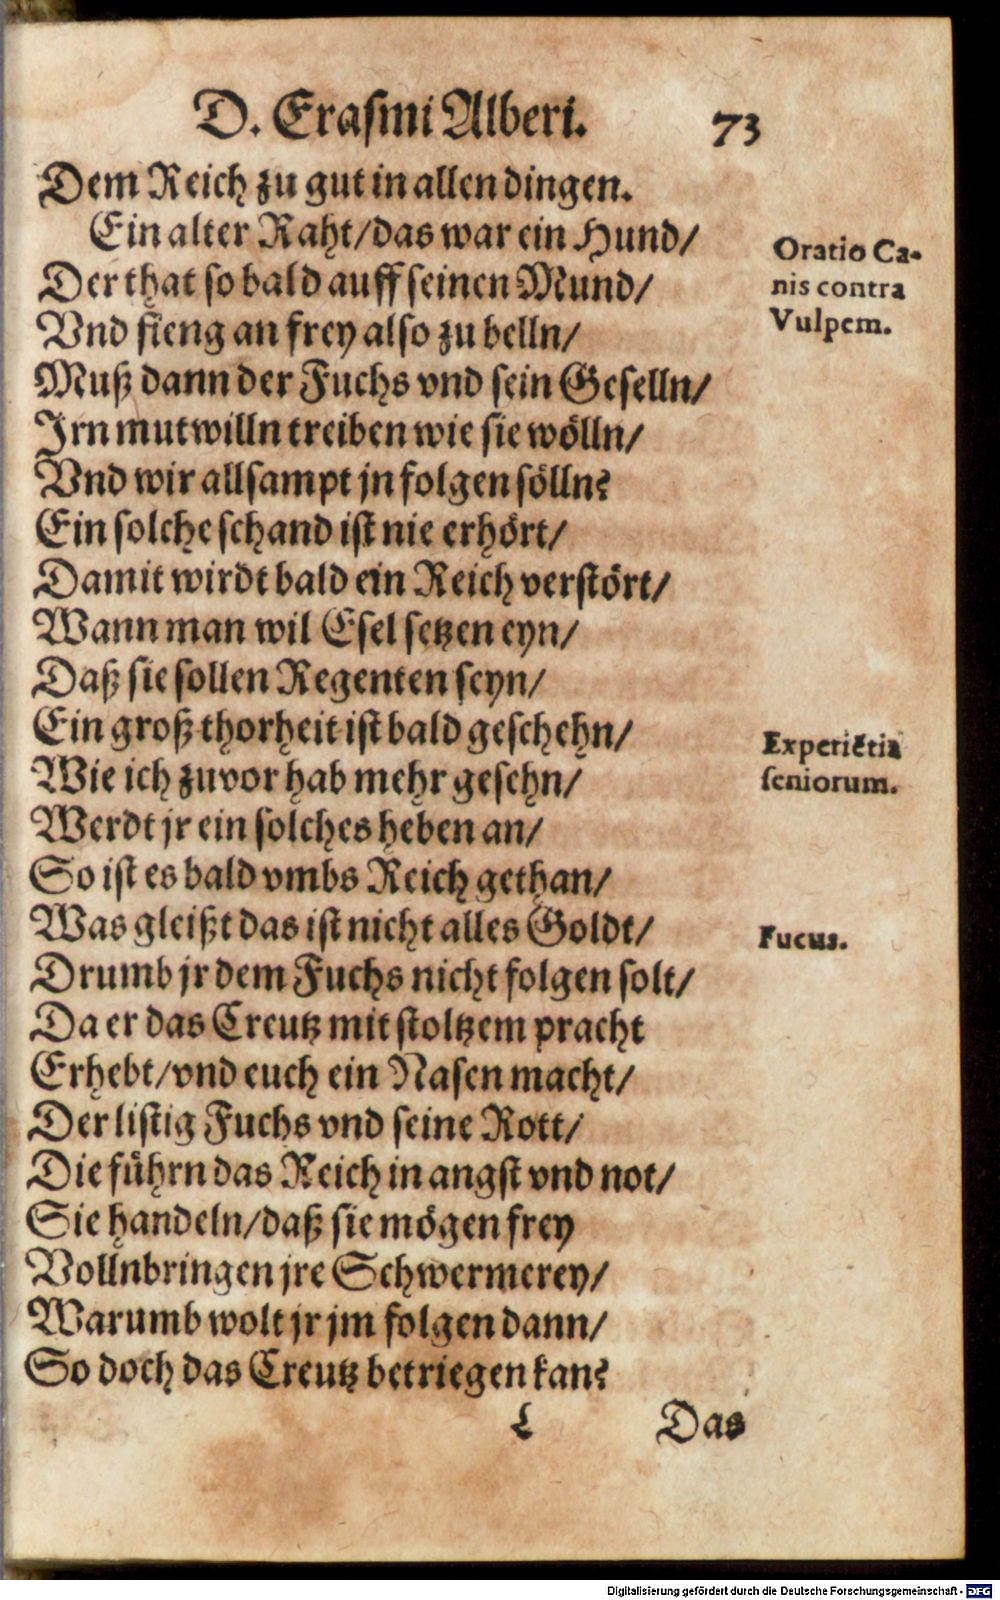 D. Erasmi Alberi. 73
Dem Reich zu gut in allen dingen.
Ein alter Raht/das war ein Hund/
Oratio Ca-
nis contra
Vulpem.
Der that so bald auff seinen Mund/
Vnd fieng an frey also zu belln/
Muß dann der Fuchs vnd sein Geselln/
Jrn mutwilln treiben wie sie wölln/
Vnd wir allsampt jn folgen sölln?
Ein solche schand ist nie erhört/
Damit wirdt bald ein Reich verstört/
Wann man wil Esel setzen eyn/
Daß sie sollen Regenten seyn/
Ein groß thorheit ist bald geschehn/
Experiētia
seniorum.
Wie ich zuvor hab mehr gesehn/
Werdt jr ein solches heben an/
So ist es bald vmbs Reich gethan/
Was gleißt das ist nicht alles Goldt/
Fucus.
Drumb jr dem Fuchs nicht folgen solt/
Da er das Creutz mit stoltzem pracht
Erhebt/vnd euch ein Nasen macht/
Der listig Fuchs vnd seine Rott/
Die führn das Reich in angst vnd not/
Sie handeln/daß sie mögen frey
Vollnbringen jre Schwermerey/
Warumb wolt jr jm folgen dann/
So doch das Creutz betriegen kan?
L Das
Digitalisierung gefördert durch die Deutsche Forschungsgemeinschaft - DFG